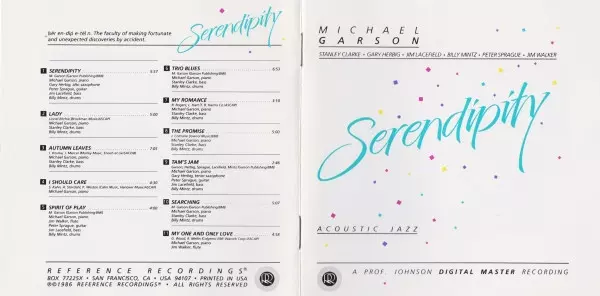 and unexpected discoveries by accident.
Serendipity
1 SERENDIPITY
M. Garson (Garson Publishing/BMI)
Michael Garson, piano
Gary Herbig, alto saxophone
Peter Sprague, guitar
Jim Lacefield, bass
Billy Mintz, drums
2 LADY 5:00
Michael Garson, piano
Stanley Clarke, bass
Billy Mintz, drums
3 AUTUMN LEAVES
Michael Garson, piano
Stanley Clarke, bass
Billy Mintz, drums
4 I SHOULD CARE
Michael Garson, piano
5 SPIRIT OF PLAY
M. Garson (Garson Publishing/BMI)
Michael Garson, piano
Jim Walker, flute
Peter Sprague, guitar
Jim Lacefield, bass
Billy Mintz, drums
6 TRIO BLUES 6:53
M. Garson (Garson Publishing/BMI)
Michael Garson, piano
Stanley Clarke, bass
Billy Mintz, drums
7 MY ROMANCE
Michael Garson, piano
8 THE PROMISE
Michael Garson, piano
Stanley Clarke, bass
Billy Mintz, drums
9 TAM'S JAM
Michael Garson, piano
Gary Herbig, tenor saxophone
Peter Sprague, guitar
Jim Lacefield, bass
Billy Mintz, drums
10 SEARCHING
M. Garson (Garson Publishing/BMI)
Michael Garson, piano
Stanley Clarke, bass
Billy Mintz, drums
11 MY ONE AND ONLY LOVE
Michael Garson, piano
Jim Walker, flute
REFERENCE RECORDINGS®
BOX 77225X • SAN FRANCISCO, CA • 94107 • PRINTED IN USA
©℗1986 REFERENCE RECORDINGS® • ALL RIGHTS RESERVED
MICHAEL
GARSON
STANLEY CLARKE • GARY HERBIG • JIM LACEFIELD • BILLY MINTZ • PETER SPRAGUE • JIM WALKER
Serendipity
ACOUSTIC JAZZ
A PROF. JOHNSON DIGITAL MASTER RECORDING